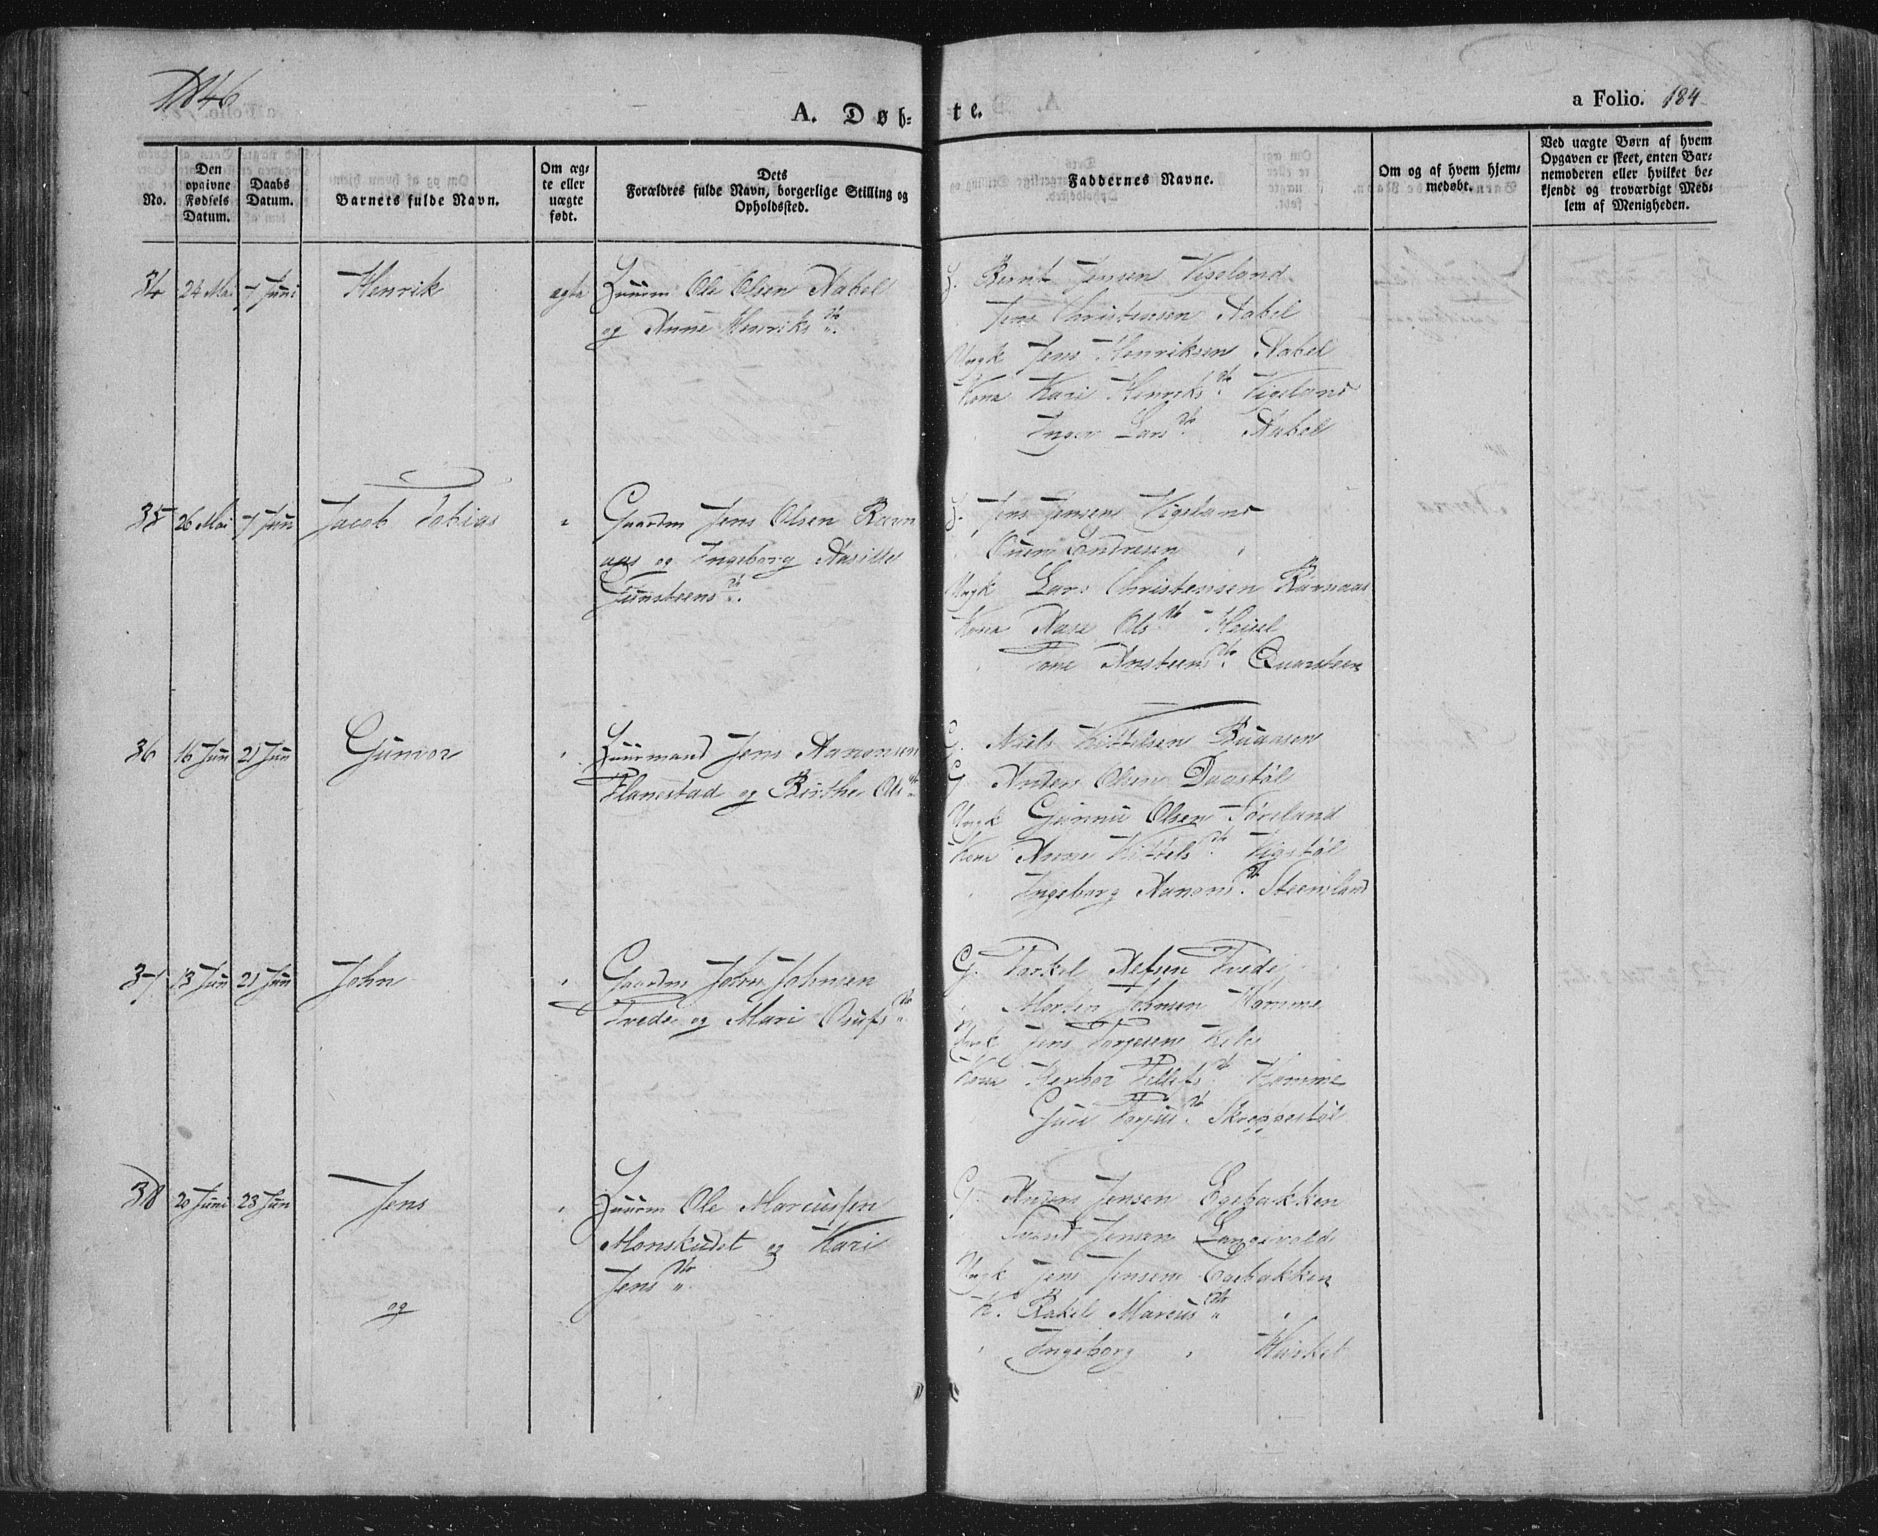 1846
A. Døb-
te.
a Folio. 184
No.
Den opgivne Fødsels Datum.
Daabs Datum.
Barnets fulde Navn.
Om æg-
te eller
uægte
født.
Dets
Forældres fulde Navn, borgerlige Stilling og
Opholdssted.
Faddernes Navne.
Om og af hvem hjem-
medøbt.
Ved uægte Børn af hvem
Opgaven er skeet, enten Bar-
nemoderen eller hvilket be-
kjendt og troværdigt Med-
lem af Menigheden.
34 24 Mai 7 Juni Henrik ægte Huusm Ole Olsen Aabel
og Anne Henriksdr.
G. Bernt Jensen Vigeland
Jens Christensen Aabel
Ungk Jens Henriksen Aabel
Kona Kari Henriksdr. Vigeland
Inger Larsdr. Aabel
35 26 Mai 7 Jun Jacob Tobias " Gaardm Jens Olsen Ravn
aas og Ingeborg
Gunsteensdr.
G. Jens Jensen Vigeland
Endresen "
Ungk Lars Christensen Ravnaas
Kona Aase Olsdr.
Tone Ansteensdr. Quarsteen
36 16 Jun 21 Jun Gunvor " Huusmand Jens Aanonsen
Flanestad og Birthe Olsdr.
G. Niels Kittelsen Buaasen
G. Anders Olsen Daastøl
Ungk Gunnu Olsen Føreland
Kona Anne Kittelsdr. Vigstøl
" Ingeborg Aanonsdr. Steensland
37 13 Jun 21 Jun John " Gaardm John Johnsen
Tvede og Mari
G. Torkel Tvede
" Morten Johnsen Homme
Ungk Jens Torjesen
Kona Tellefsdr. Homme
Guri Torjusdr. Skreppestøl
38 20 Juni 23 Jun Jens " Huusm Ole Marcussen
Monskudet og Kari
Jensdr.
og
G. Anders Jensen Egebakken
Jensen Langevold
Ungk Jens Jensen Egebakken
K. Rakel Marcusdr. "
" Ingeborg "